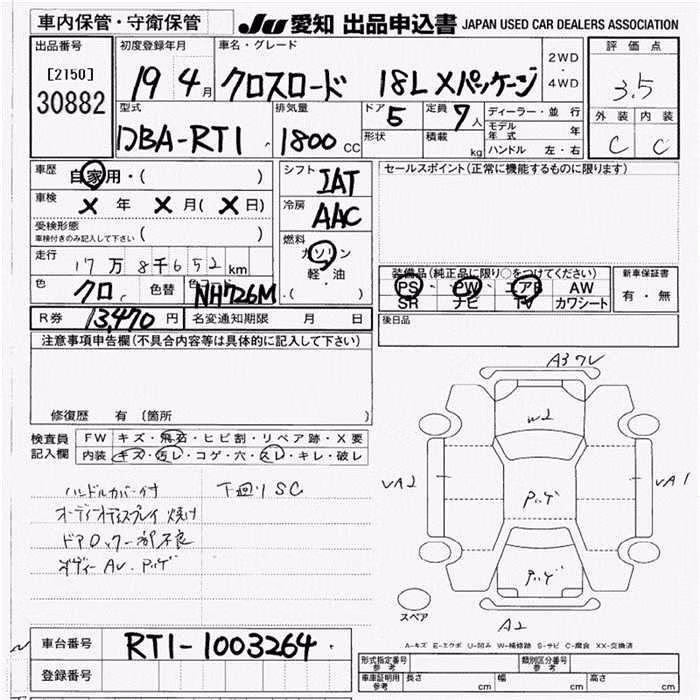 車内保管・守衛保管 JU 愛知 出品申込書 JAPAN USED CAR DEALERS ASSOCIATION
出品番号 初度登録年月 車名・グレード 2WD・4WD 評価点
[2150] 30882 19 4月 クロスロード 18L Xパッケージ 3.5
型式 排気量 ドア 5 定員 7人 ディーラー・並行 外装 内装
DBA-RT1 1800CC 形状 積載 kg モデル年式 年 C C
ハンドル 左・右
車歴 自家用・( ) シフト IAT セールスポイント(正常に機能するものに限ります)
車検 X年 X月(X日) 冷房 AAC
受検形態 車検付きのみ記入して下さい ( )
燃料 ガソリン 軽・油 ・( )
走行 17万8千652km
装備品(純正品に限り○をつけてください) 新車保証書
色 クロ 色替 色コード NH726M PS PW エアB AW 有・無
SR ナビ TV カワシート
R券 13,470円 名変通知期限 月 日 後日品
注意事項申告欄(不具合内容等は具体的に記入して下さい)
A3
W2
修復歴 有 〔箇所
検査員記入欄 FW キズ・飛石・ヒビ割・リペア跡・X要
内装 キズ・汚レ・コゲ・穴・スレ・キレ・破レ
ハンドルカバー付 下廻りSC
オーディオディスプレイ焼け
ドアロック一部不良
ボディーAU・アッゲ
A2 A1
スペア A2
A-キズ E-エクボ U-凹み W-補修跡 S-サビ C-腐食 XX-交換済
車台番号 RT1-1003264
登録番号
形式指定番号 参考 類別区分番号 参考
車庫証明用 参考 長さ cm 幅 cm 高さ cm